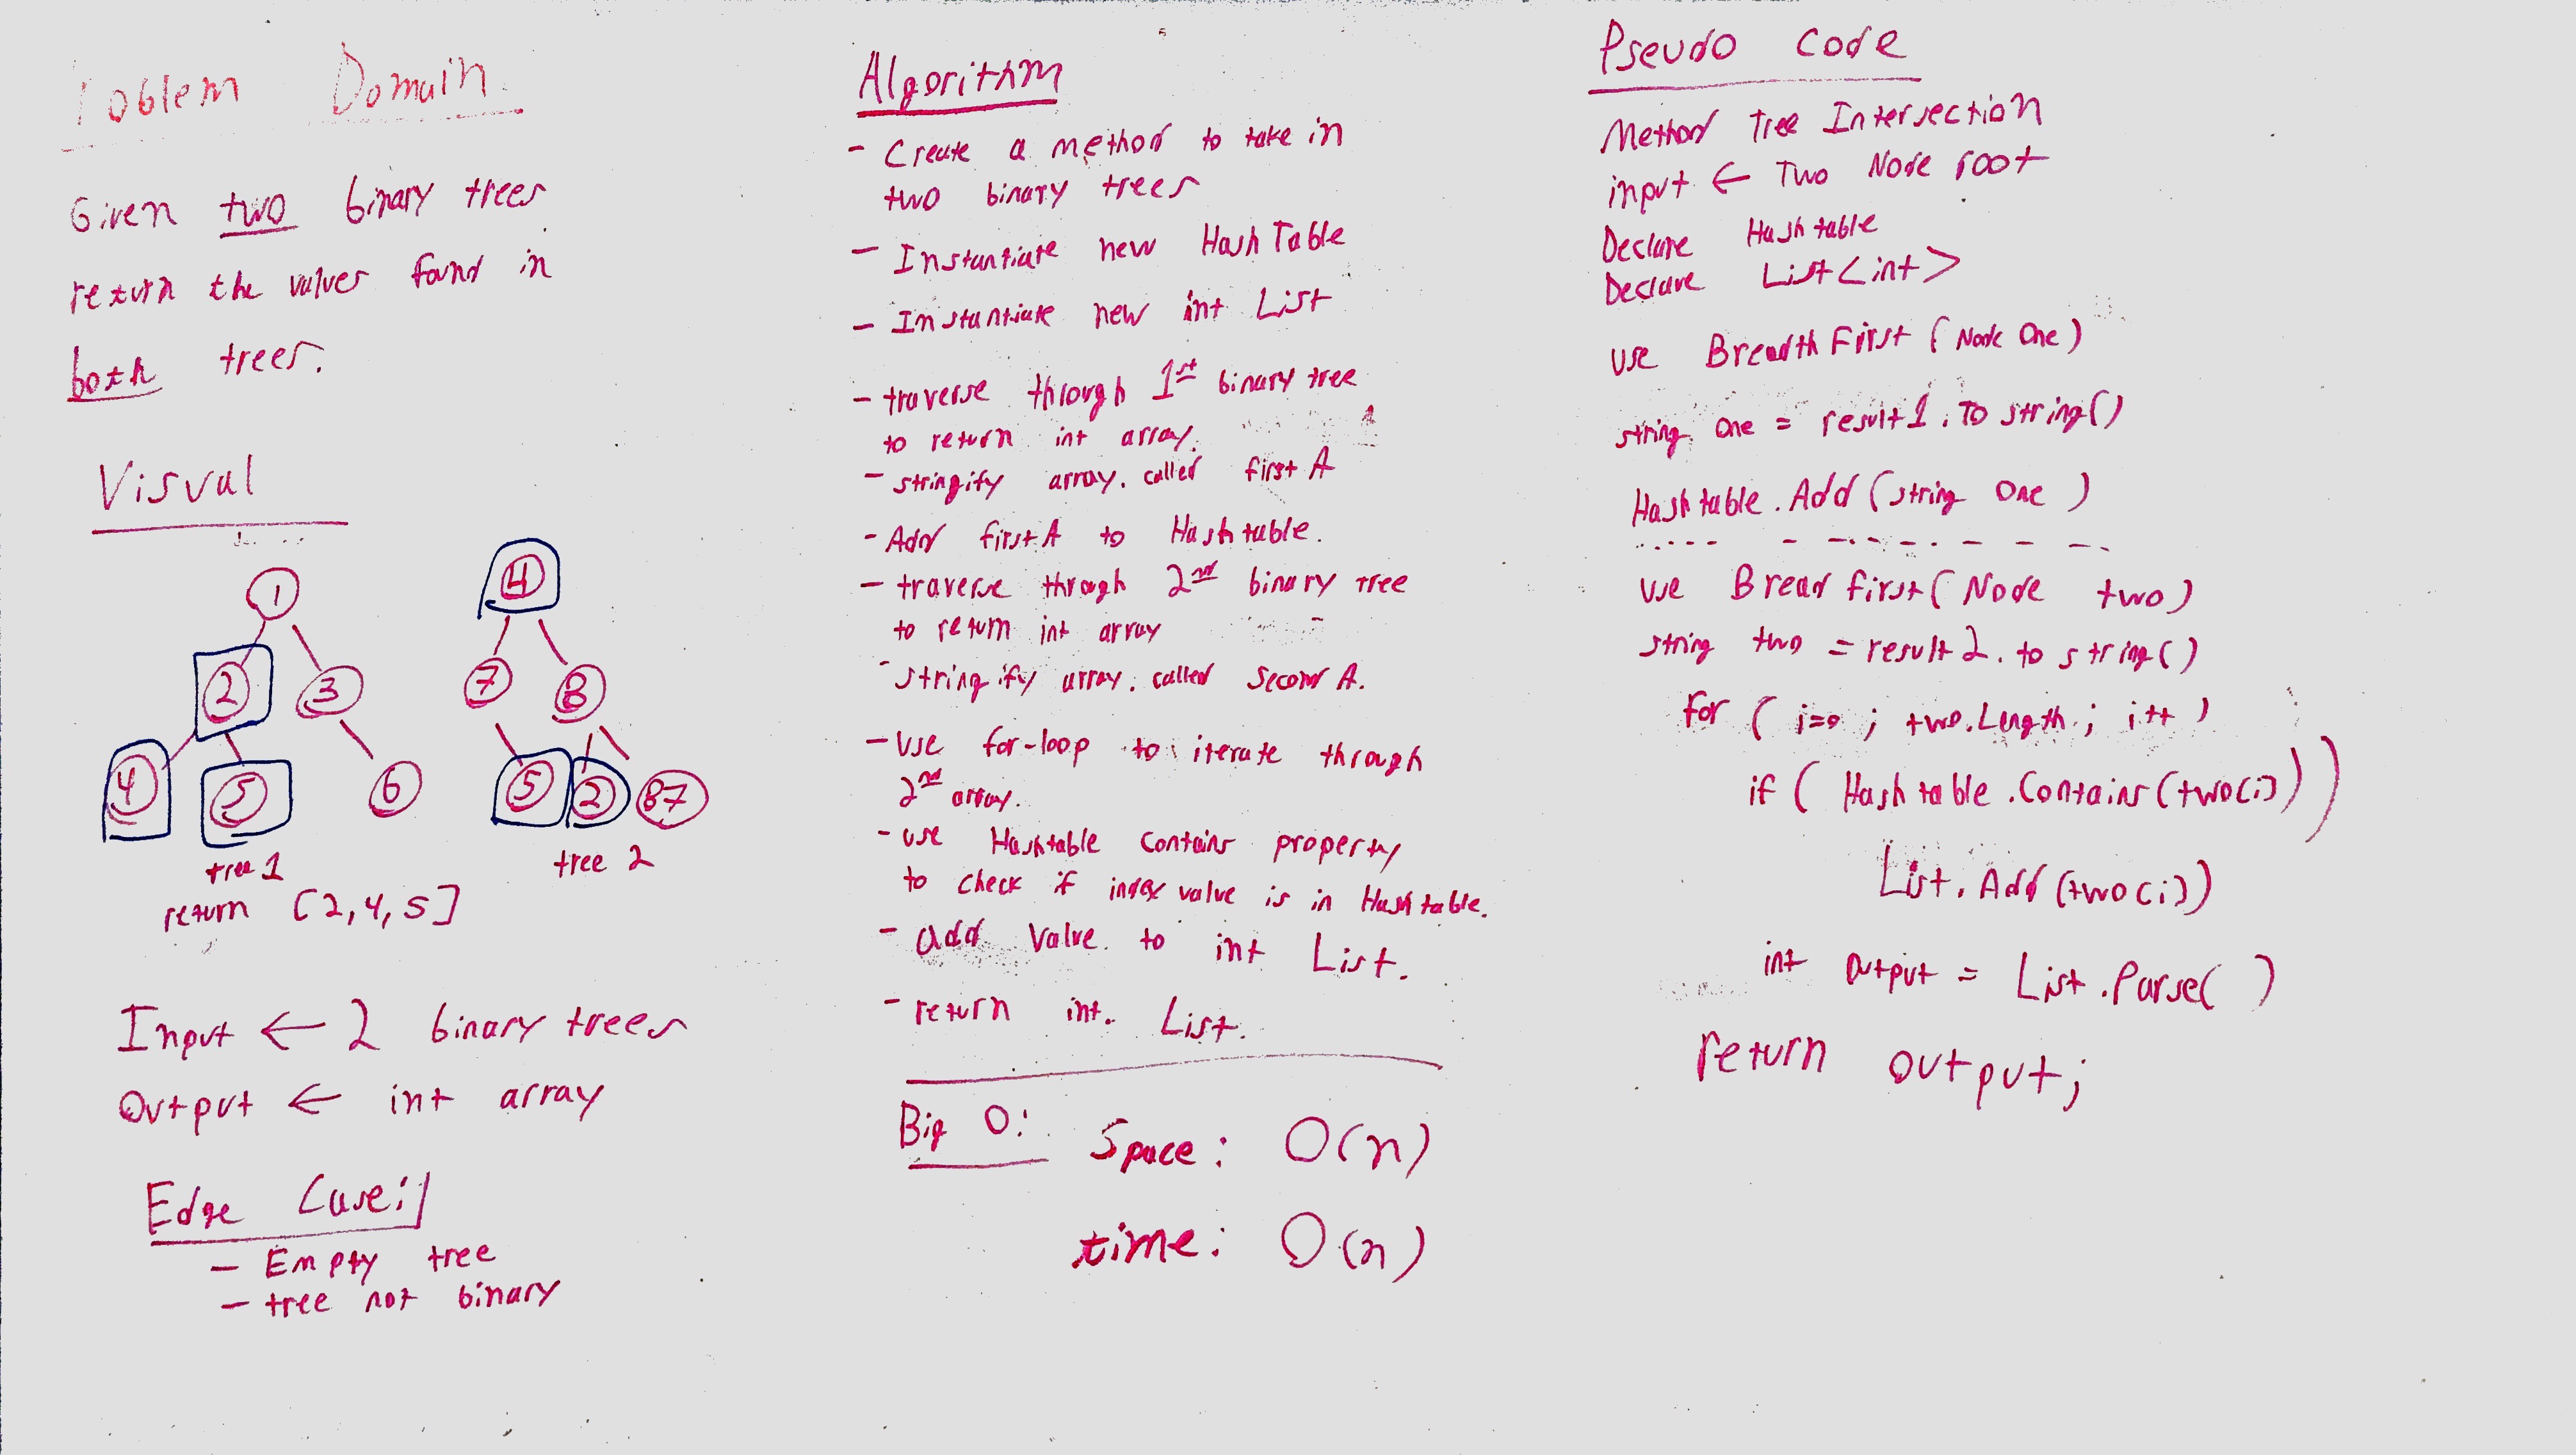 Problem Domain
Given two binary trees
return the values found in
both trees.
Visual
1
2 3
4 5 6
tree 1
4
7 8
5 2 87
tree 2
return [2,4,5]
Input ← 2 binary trees
Output ← int array
Edge Case:
- Empty tree
- tree not binary
Algorithm
- Create a method to take in
two binary trees
- Instantiate new HashTable
- Instantiate new int List
- traverse through 1st binary tree
to return int array.
- stringify array. called first A
- Add first A to Hashtable.
- traverse through 2nd binary tree
to return int array
- stringify array. called Second A.
- use for-loop to iterate through
2nd array.
- use Hashtable Contains property
to check if index value is in Hashtable.
- add value to int List.
- return int. List.
Big O: Space: O(n)
time: O(n)
Pseudo Code
Method Tree Intersection
input ← Two Node root
Declare Hashtable
Declare List<int>
use Breadth First (Node One)
string One = result1.To string()
Hashtable.Add(string One )
use Bread first(Node two)
string two = result2.to string()
for ( i=0 ; two.Length ; i++ )
if ( Hashtable.Contains(two[i]))
List.Add(two[i])
int output = List.Parse( )
return output;